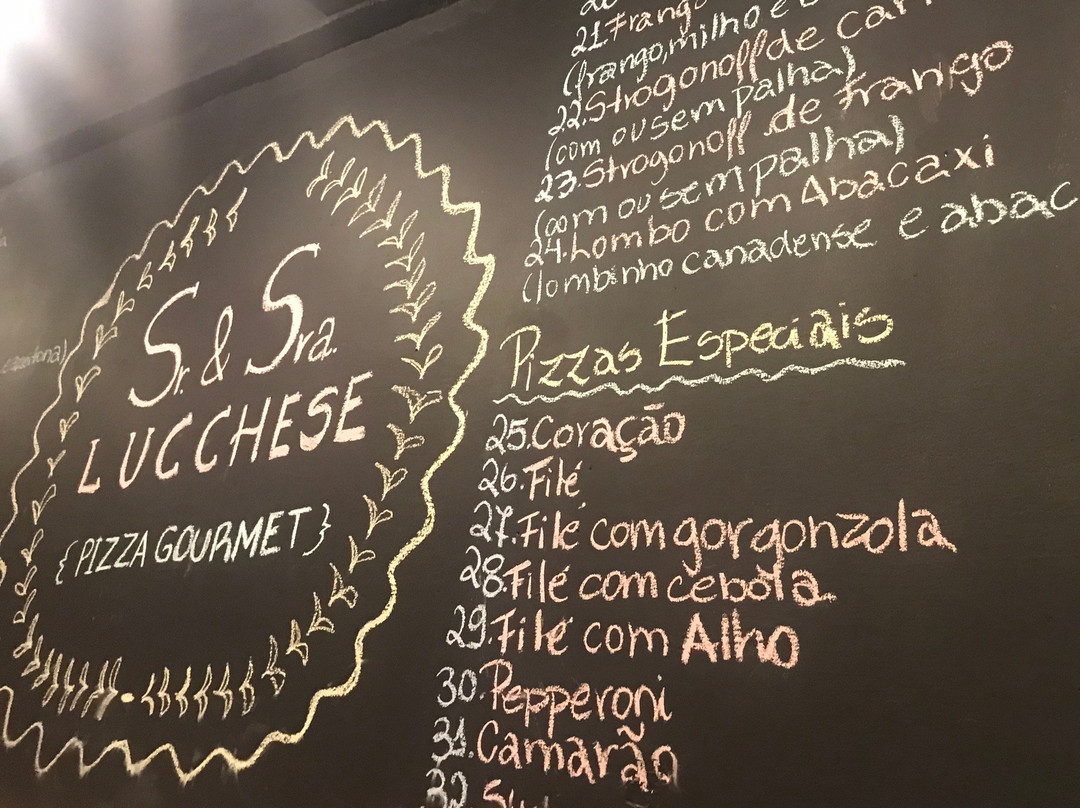 Sr. & Sra.
LUCCHESE
{PIZZA GOURMET}
21.Frango
(frango, milho e
22.Strogonoff de
(com ou sem palha)
23.Strogonoff de frango
(com ou sem palha)
24.Lombo com Abacaxi
(lombinho canadense e
Pizzas Especiais
25.Coração
26.Filé
27.Filé com gorgonzola
28.Filé com cebola
29.Filé com Alho
30.Pepperoni
31.Camarão
32.